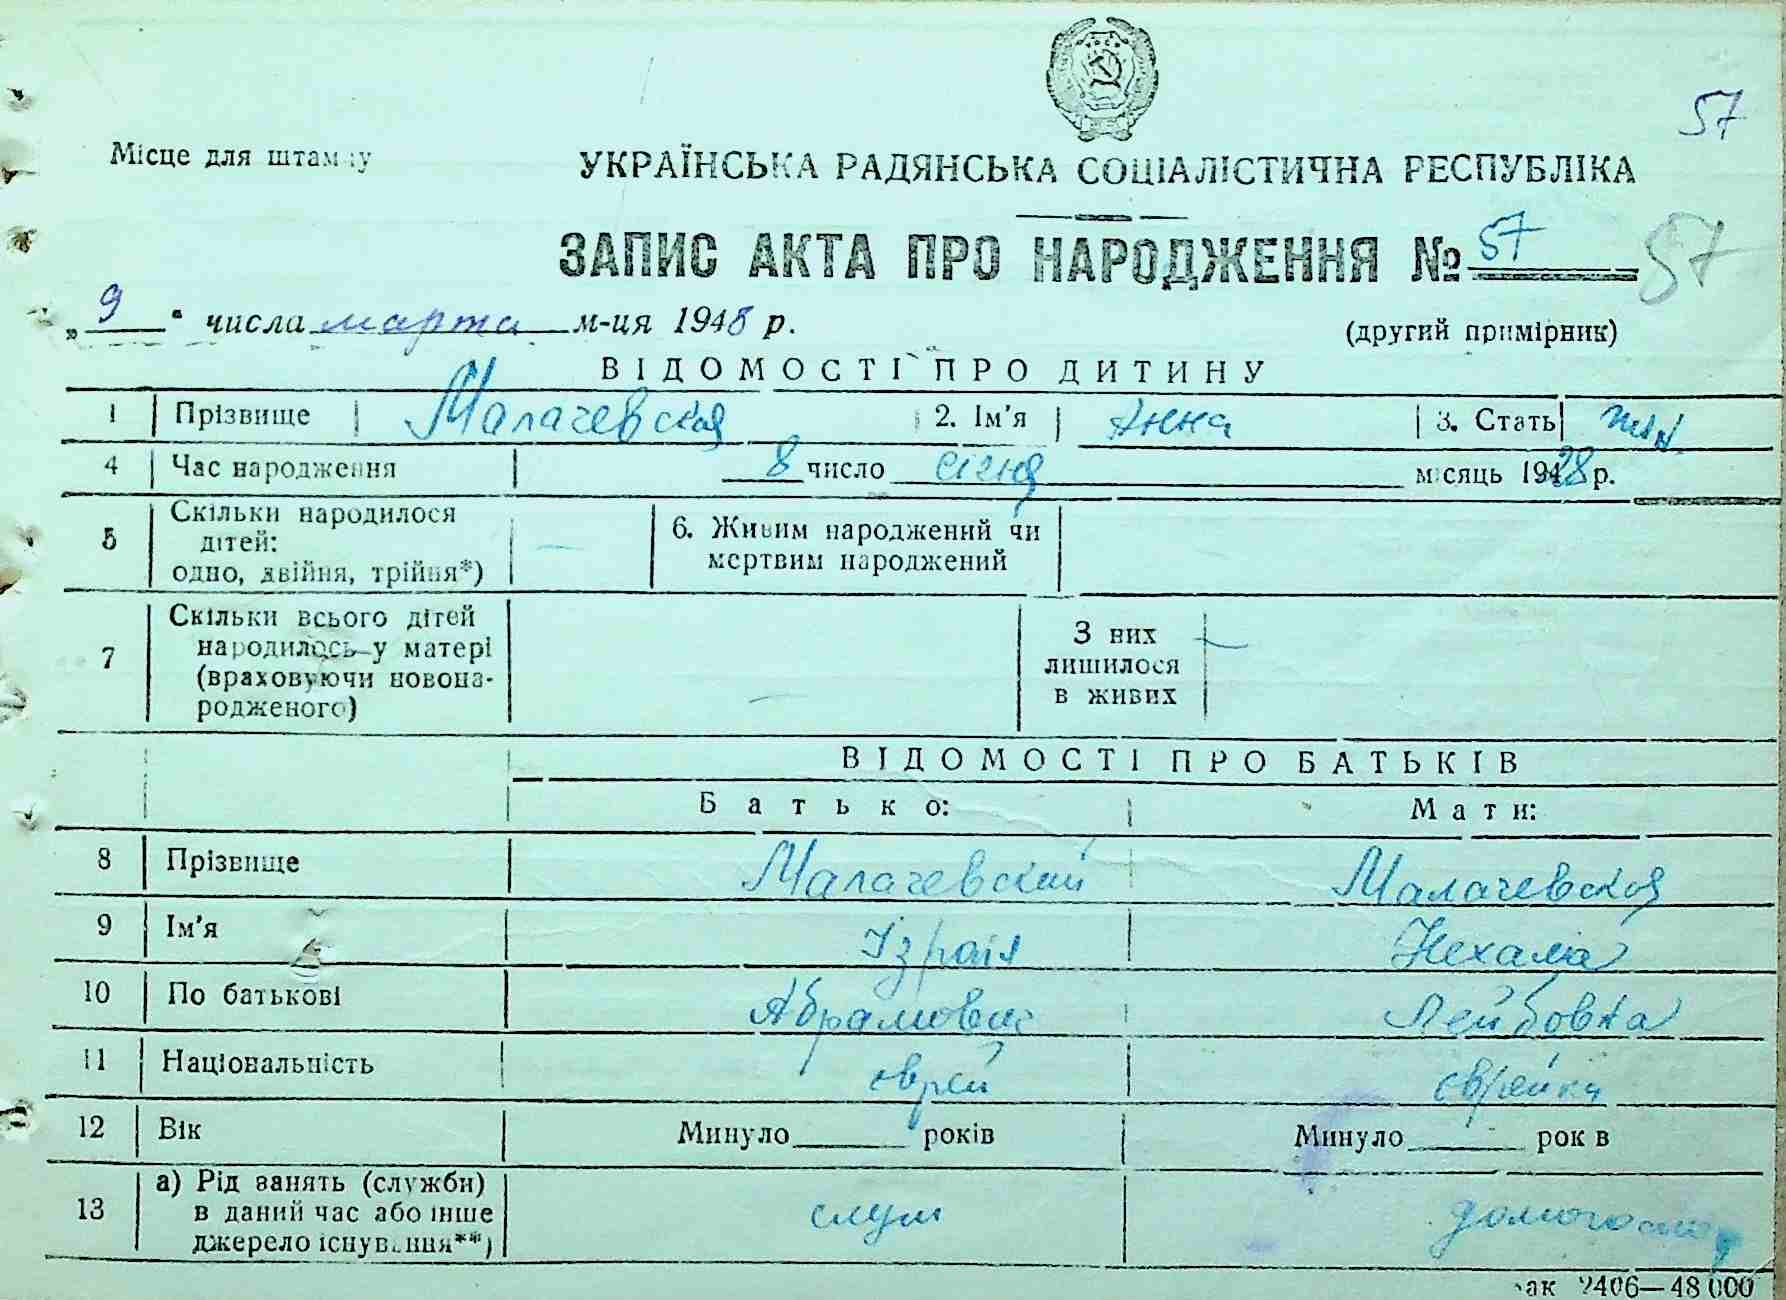 57
Місце для штампу
УКРАЇНСЬКА РАДЯНСЬКА СОЦІАЛІСТИЧНА РЕСПУБЛІКА
ЗАПИС АКТА ПРО НАРОДЖЕННЯ № 57 57
„9“ числа марта м-ця 1948 р.
(другий примірник)
ВІДОМОСТІ ПРО ДИТИНУ
1 Прізвище Малачевская 2. Ім'я Анна 3. Стать жін
4 Час народження 8 число січня місяць 1928 р.
5 Скільки народилося дітей: одно, двійня, трійня*) — 6. Живим народжений чи мертвим народжений
7 Скільки всього дітей народилось у матері (враховуючи новонародженого) — З них лишилося в живих —
ВІДОМОСТІ ПРО БАТЬКІВ
Батько: Мати:
8 Прізвище Малачевский Малачевская
9 Ім'я Ізраїл Нехама
10 По батькові Абрамович Лейбовна
11 Національність єврей єврейка
12 Вік Минуло років Минуло років
13 а) Рід занять (служби) в даний час або інше джерело існування**) служ домогосп
зак 2406—48 000